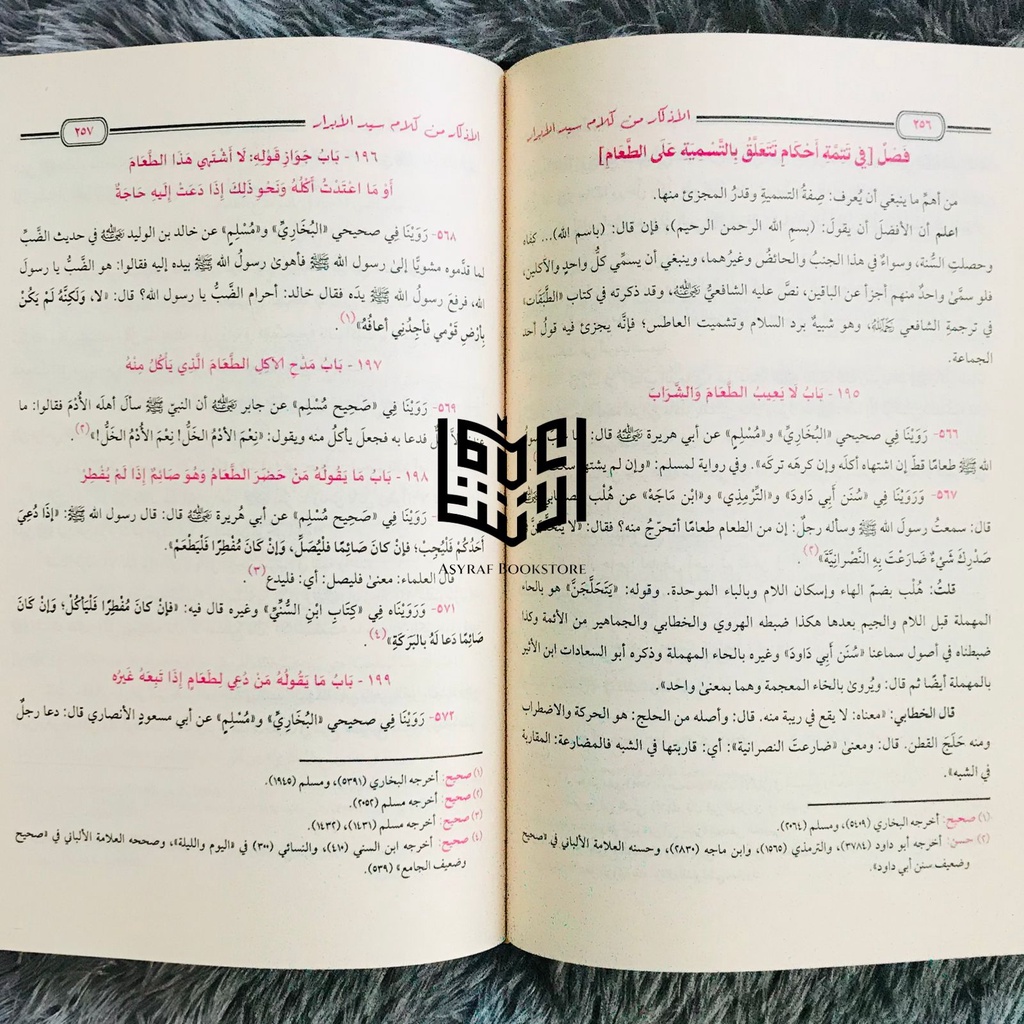 ٢٥٦
الأذكار من كلام سيد الأبرار
فَصْلٌ [فِي تَتِمَّةِ أَحْكَامٍ تَتَعَلَّقُ بِالتَّسْمِيَةِ عَلَى الطَّعَامِ]
من أهمِّ ما ينبغي أن يُعرف: صِفةُ التسميةِ وقدرُ المجزئ منها.
اعلم أن الأفضلَ أن يقولَ: (بسمِ الله الرحمن الرحيم)، فإن قال: (باسمِ الله)... كفاه
وحصلتِ السُّنة، وسواءٌ في هذا الجنبُ والحائضُ وغيرُهما، وينبغي أن يسمِّي كلُّ واحدٍ والآكلين،
فلو سمَّى واحدٌ منهم أجزأ عن الباقين، نصَّ عليه الشافعيُّ رضي الله عنه، وقد ذكرته في كتاب «الطَّبَقَات»
في ترجمةِ الشافعي رحمه الله، وهو شبيهٌ برد السلام وتشميت العاطس؛ فإنَّه يجزئ فيه قولُ أحد
الجماعة.
١٩٥- بَابُ لَا يَعِيبُ الطَّعَامَ وَالشَّرَابَ
٥٦٦- رَوَيْنَا فِي صحيحي «البُخَارِيِّ» و«مُسْلِمٍ» عن أبي هريرة رضي الله عنه قال:
الله ﷺ طعامًا قطُّ إن اشتهاه أكلَه وإن كرهَه تركَه». وفي رواية لمسلم: «وإن لم يشتهِه سكت»
٥٦٧- وَرَوَيْنَا فِي «سُنَن أَبِي دَاودَ» و«التِّرْمِذِي» و«ابْنِ مَاجَهْ» عن هُلْبِ
قال: سمعتُ رسولَ الله ﷺ وسأله رجلٌ: إن من الطعام طعامًا أتحرّجُ منه؟ فقال: «لَا
صَدْرِكَ شَيْءٌ ضَارَعْتَ بِهِ النَّصْرَانِيَّةَ»(٢).
قلتُ: هُلْب بضمِّ الهاء وإسكان اللام وبالباء الموحدة. وقوله: «يَتَحَلَّجَنَّ» هو بالحاء
المهملة قبل اللام والجيم بعدها هكذا ضبطه الهروي والخطابي والجماهير من الأئمة وكذا
ضبطناه في أصول سماعنا «سُنَن أَبِي دَاودَ» وغيره بالحاء المهملة وذكره أبو السعادات ابن الأثير
بالمهملة أيضًا ثم قال: ويُروى بالخاء المعجمة وهما بمعنىً واحد».
قال الخطابي: «معناه: لا يقع في ريبة منه. قال: وأصله من الحلج: هو الحركة والاضطراب
ومنه حَلَجَ القطن. قال: ومعنى «ضارعتَ النصرانية»: أي: قاربتها في الشبه فالمضارعة: المقاربة
في الشبه».
(١) صحيح: أخرجه البخاري (٥٤٠٩)، ومسلم (٢٠٦٤).
(٢) حسن: أخرجه أبو داود (٣٧٨٤)، والترمذي (١٥٦٥)، وابن ماجه (٢٨٣٠)، وحسنه العلامة الألباني في «صحيح
وضعيف سنن أبي داود».
الأذكار من كلام سيد الأبرار
٢٥٧
١٩٦- بَابُ جَوَازِ قَوْلِهِ: لَا أَشْتَهِي هَذَا الطَّعَامَ
أَوْ مَا اعْتَدْتُ أَكْلَهُ وَنَحْوِ ذَلِكَ إِذَا دَعَتْ إِلَيهِ حَاجَةٌ
٥٦٨- رَوَيْنَا فِي صحيحي «البُخَارِيِّ» و«مُسْلِمٍ» عن خالد بن الوليد رضي الله عنه في حديث الضَّبِّ
لما قدَّموه مشويًّا إلىٰ رسول الله ﷺ فأهوىٰ رسولُ الله ﷺ بيده إليه فقالوا: هو الضَّبُّ يا رسولَ
الله، فرفعَ رسولُ الله ﷺ يدَه فقال خالد: أحرام الضَّبُّ يا رسول الله؟ قال: «لا، وَلَكِنَّهُ لَمْ يَكُنْ
بِأَرْضِ قَوْمِي فأجِدُنِي أعافُهُ»(١).
١٩٧- بَابُ مَدْحِ الآكِلِ الطَّعَامَ الَّذِي يَأكُلُ مِنْهُ
٥٦٩- رَوَيْنَا فِي «صَحِيح مُسْلِمٍ» عن جابر رضي الله عنه أن النبيّ ﷺ سألَ أهلَه الأُدْمَ فقالوا: ما
فدعا به فجعلَ يأكلُ منه ويقول: «نِعْمَ الأدْمُ الخَلُّ! نِعْمَ الأُدْمُ الخَلُّ!»(٢).
١٩٨- بَابُ مَا يَقُولُهُ مَنْ حَضَرَ الطَّعَامَ وَهُوَ صَائِمٌ إِذَا لَمْ يُفْطِرْ
رَوَيْنَا فِي «صَحِيح مُسْلِمٍ» عن أبي هُريرة رضي الله عنه قال: قال رسول الله ﷺ: «إِذَا دُعِيَ
أَحَدُكُمْ فَلْيُجِبْ؛ فإنْ كانَ صَائِمًا فلْيُصَلِّ، وَإنْ كانَ مُفْطِرًا فَلْيَطْعَمْ».
قال العلماء: معنىٰ فليصل: أي: فليدع(٣).
٥٧١- وَرَوَيْنَاه فِي «كِتَابِ ابْنِ السُّنِّيِّ» وغيره قال فيه: «فإنْ كانَ مُفْطِرًا فَلْيَأكُلْ؛ وَإنْ كانَ
صَائِمًا دَعا لَهُ بالبَرَكَةِ»(٤).
١٩٩- بَابُ مَا يَقُولُهُ مَنْ دُعِي لِطَعَامٍ إِذَا تَبِعَهُ غَيْرُه
٥٧٢- رَوَيْنَا فِي صحيحي «البُخَارِيِّ» و«مُسْلِمٍ» عن أبي مسعودٍ الأنصاري قال: دعا رجلٌ
(١) صحيح: أخرجه البخاري (٥٣٩١)، ومسلم (١٩٤٥).
(٢) صحيح: أخرجه مسلم (٢٠٥٢).
(٣) صحيح: أخرجه مسلم (١٤٣١)، (١٤٣٢).
(٤) صحيح: أخرجه ابن السني (٤١٠)، والنسائي (٣٠٠) في «اليوم والليلة»، وصححه العلامة الألباني في «صحيح
وضعيف الجامع» (٥٣٩).
ASYRAF BOOKSTORE